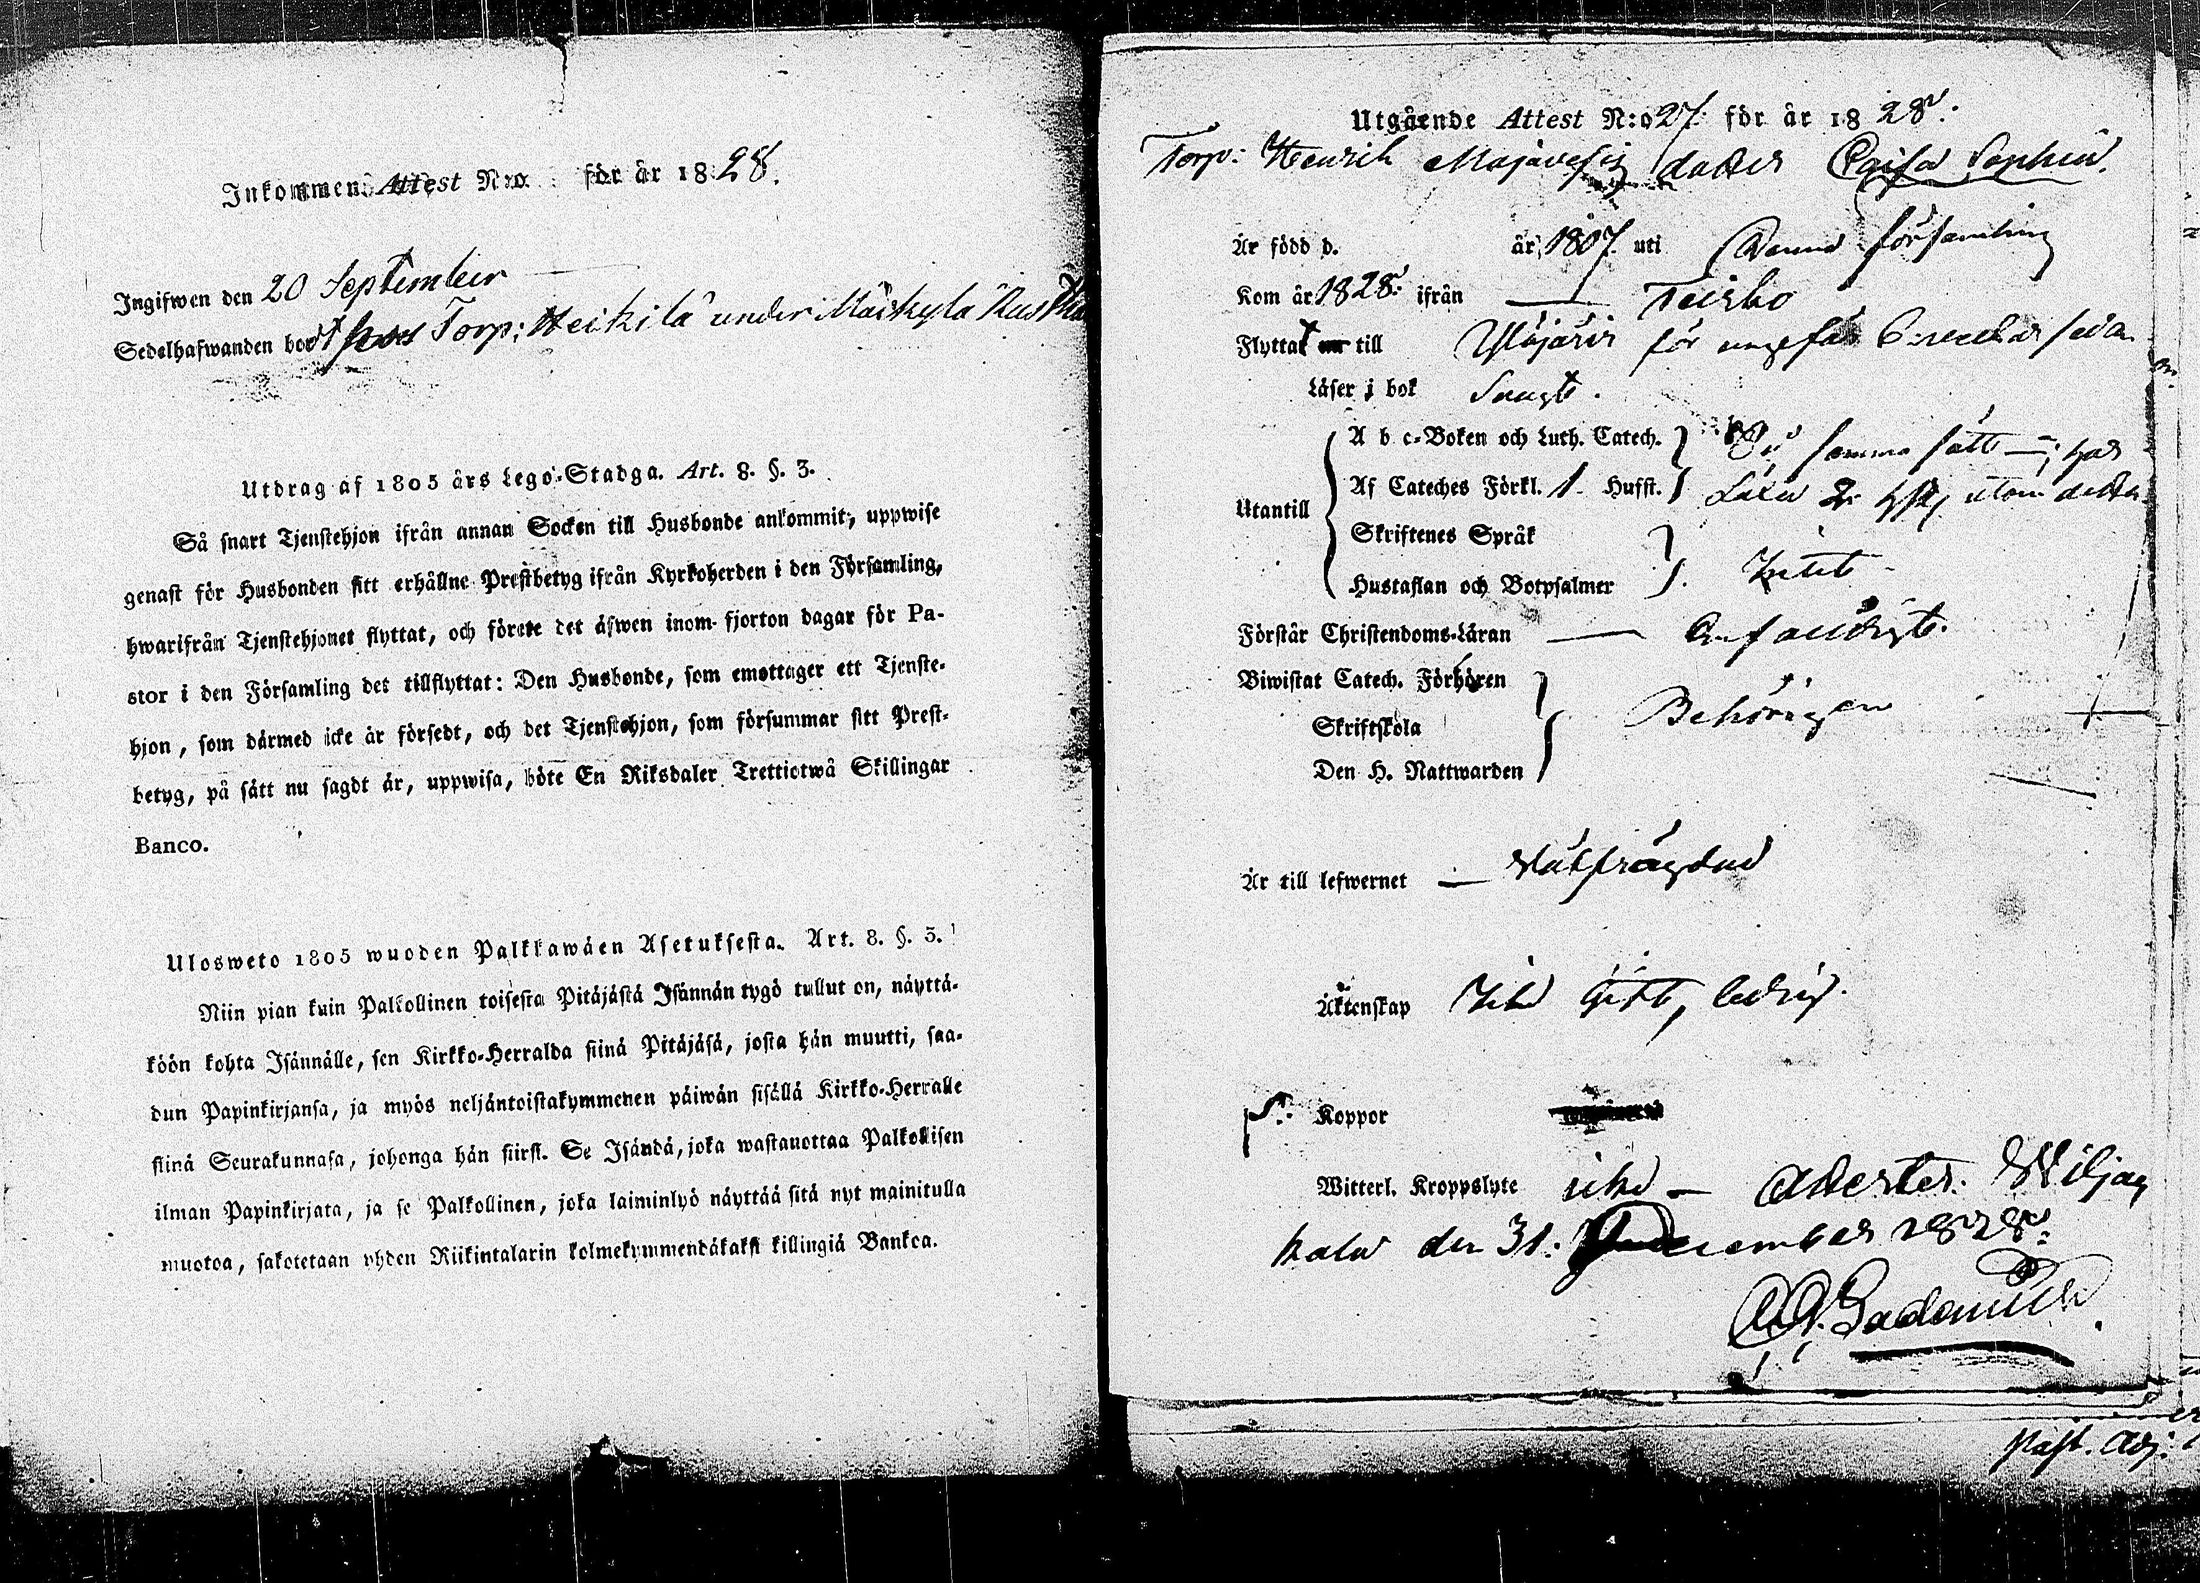 Inkommen Attest N:o för år 1828.
Ingifwen den 20 September
Sedelhafwanden bor hos Torp: Heikilä under Märkylä Rust
Utdrag af 1805 års Lego-Stadga. Art. 8. §. 3.
Så snart Tjenstehjon ifrån annan Socken till Husbonde ankommit, uppwise
genast för Husbonden sitt erhållne Prestbetyg ifrån Kyrkoherden i den Församling,
hwarifrån Tjenstehjonet flyttat, och förete det äfwen inom fjorton dagar för Pa-
stor i den Församling det tillflyttat: Den Husbonde, som emottager ett Tjenste-
hjon, som därmed icke är försedt, och det Tjenstehjon, som försummar sitt Prest-
betyg, på sätt nu sagdt är, uppwisa, böte En Riksdaler Trettiotwå Skillingar
Banco.
Ulosweto 1805 wuoden Palkkawäen Asetuksesta. Art. 8. §. 3.
Niin pian kuin Palkollinen toisesta Pitäjästä Isännän tygö tullut on, näyttä-
köön kohta Isännälle, sen Kirkko-Herralda siinä Pitäjäsä, josta hän muutti, saa-
dun Papinkirjansa, ja myös neljäntoistakymmenen päiwän sisällä Kirkko-Herralle
siinä Seurakunnasa, johonga hän siirsi. Se Isändä, joka wastanottaa Palkollisen
ilman Papinkirjata, ja se Palkollinen, joka laiminlyö näyttää sitä nyt mainitulla
muotoa, sakotetaan yhden Riikintalarin kolmekymmendäkaksi killingiä Bankoa.
Utgående Attest N:o 27 för år 1828.
Torp: Henrik Majavesis dotter Caisa Sophia.
Är född d. år 1807 uti denna församling
Kom år 1828 ifrån Teisko
Flyttat till Ylöjärvi för ungefär veckor sedan
Läser i bok Svagt.
Utantill
A b c-Boken och Luth. Catech. På samma sätt
Af Cateches Förkl. 1 Husst. Läxa 2 utom
Skriftenes Språk
Hustaflan och Botpsalmer Intet
Förstår Christendoms-Läran Enfaldigt.
Biwistat Catech. Förhören
Skriftskola Behörigen
Den H. Nattwarden
Är till lefwernet Wälfrägdad
Äktenskap Icke Gift, ledig.
Koppor
Witterl. Kroppslyte icke — Attesterar Wiljak
kala den 31. December 1828.
Gadenius
Past. Adj: